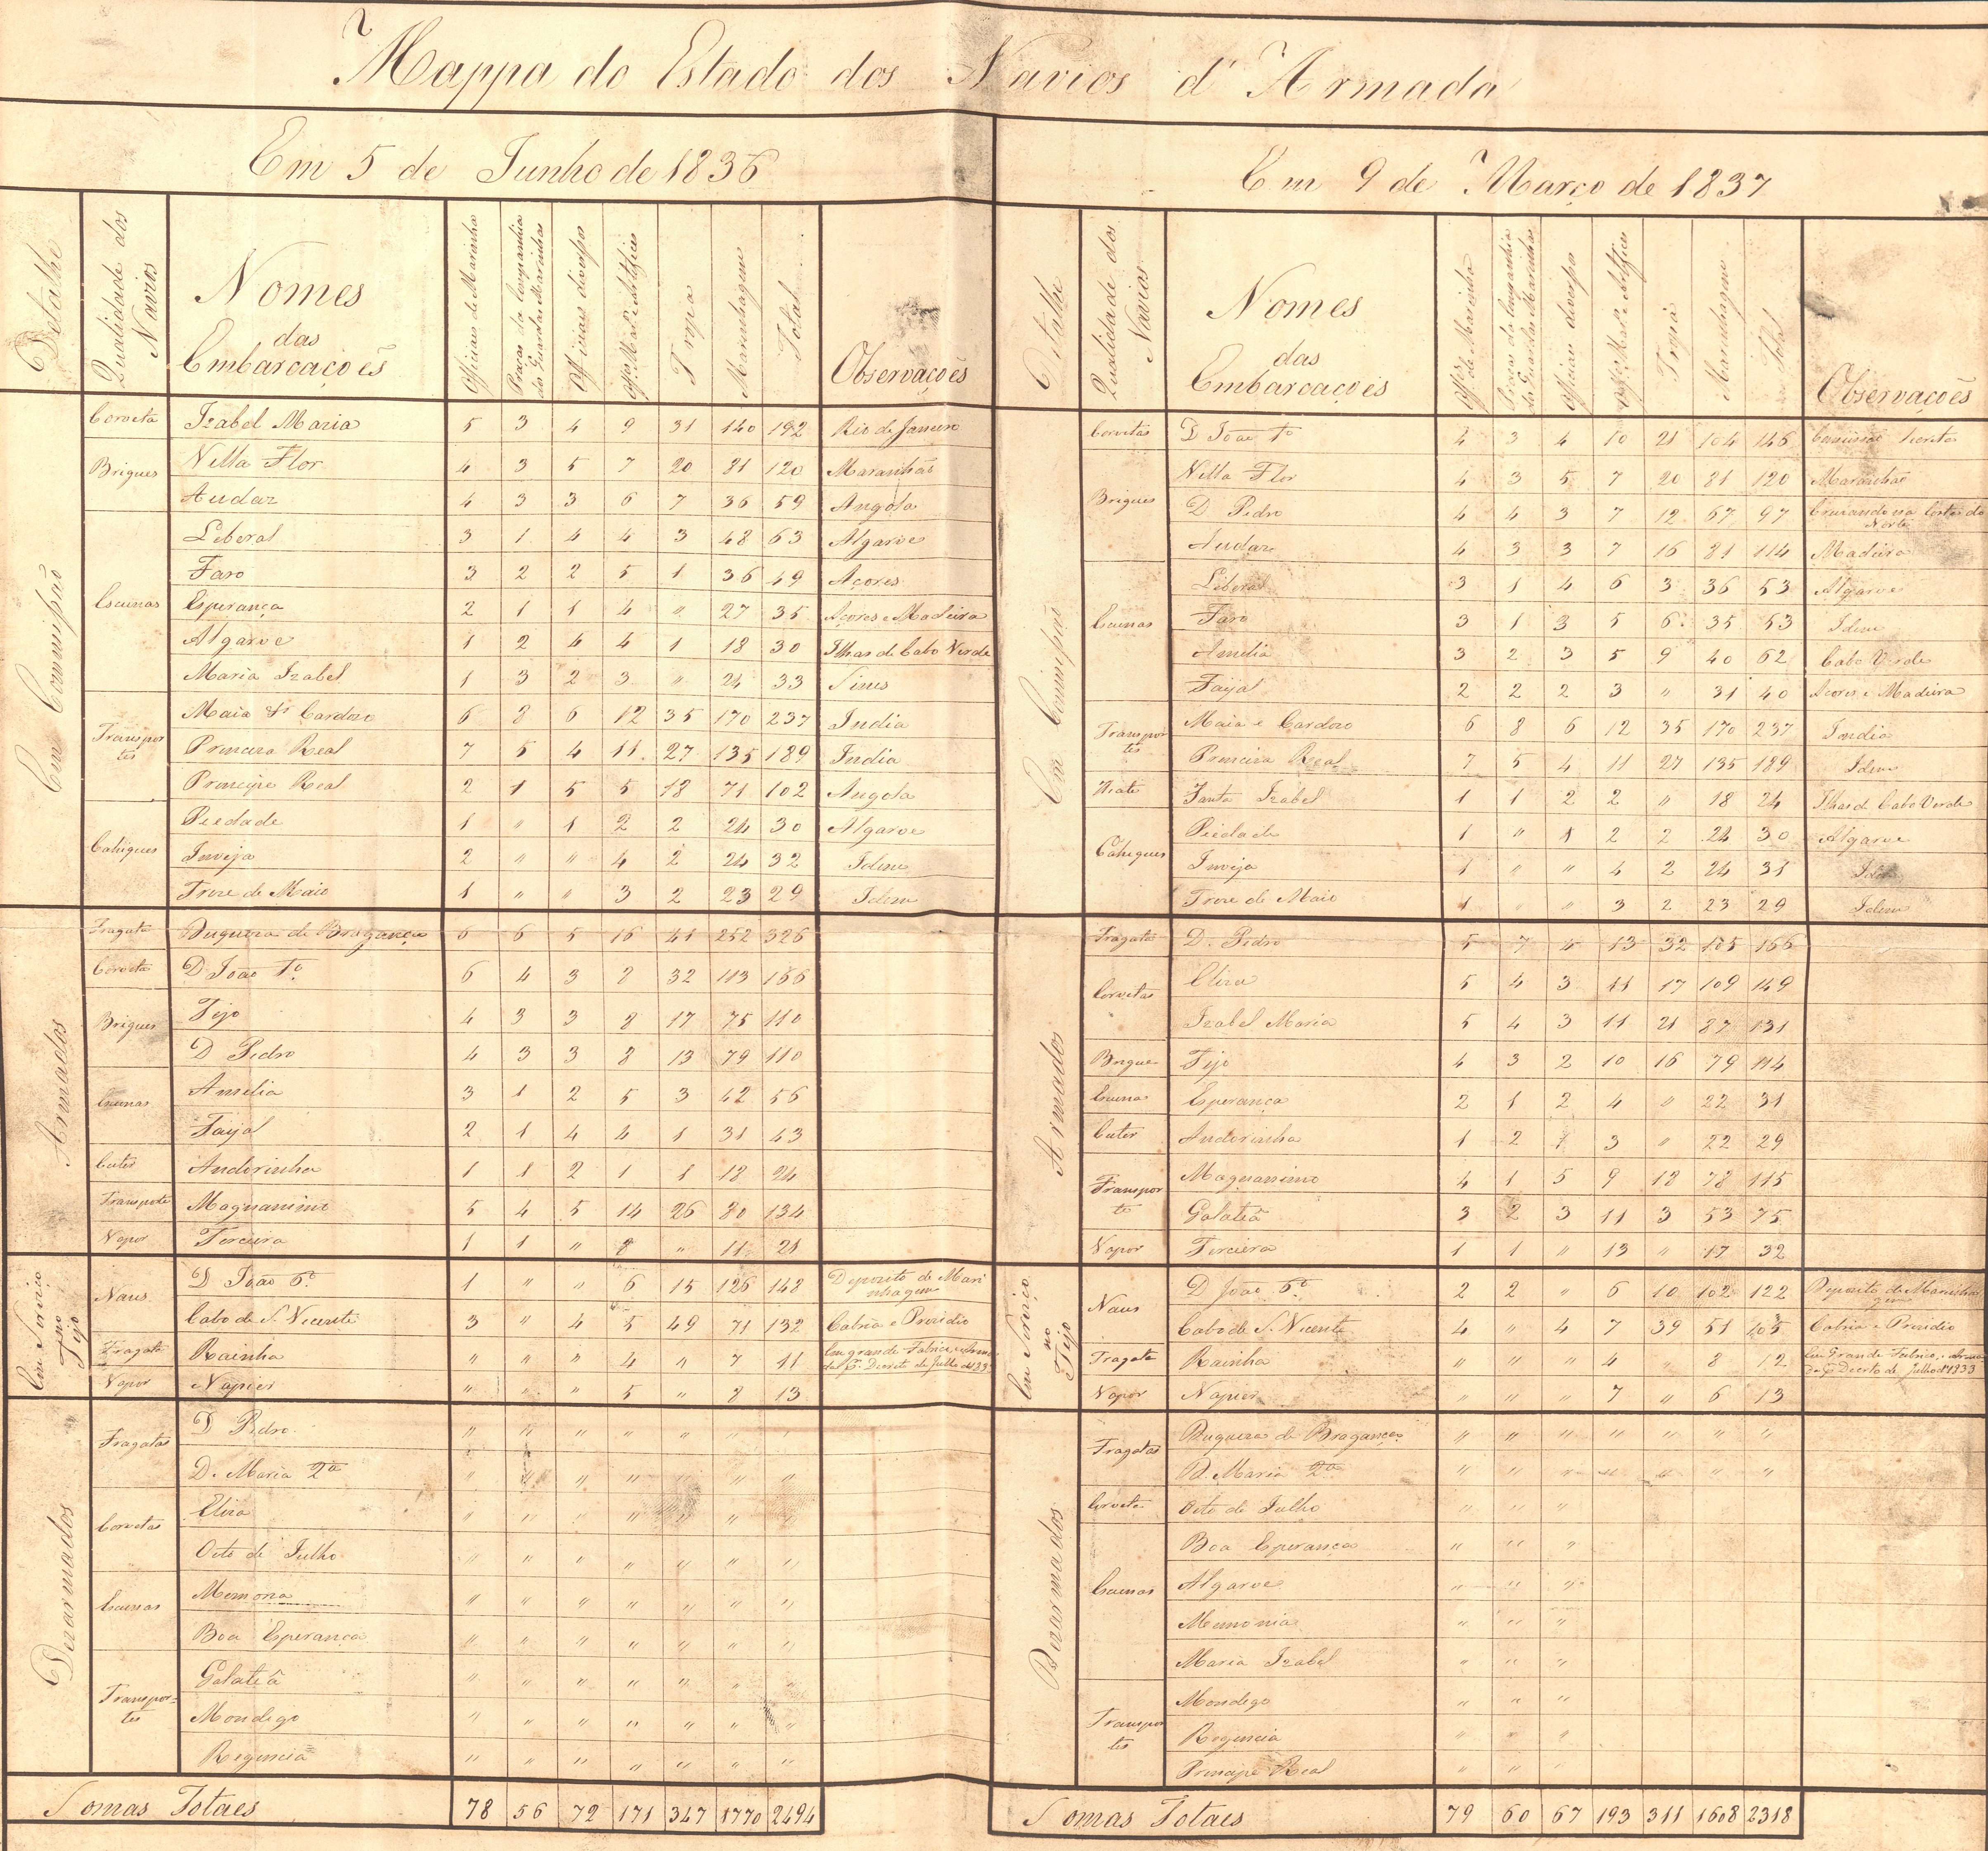 Mappa do Estado dos Navios d'Armada
Em 5 de Junho de 1836
Detalhe | Qualidade dos Navios | Nomes das Embarcações | Officiaes de Marinha | Praças da Companhia da Guardas Marinhas | Officiaes diversos | Offes. Mars. e Artifices | Tropa | Marinhagem | Total | Observações
Em Commissão
Corveta | Izabel Maria | 5 | 3 | 4 | 9 | 31 | 140 | 192 | Rio de Janeiro
Brigues | Villa Flor | 4 | 3 | 5 | 7 | 20 | 81 | 120 | Maranhão
Audaz | 4 | 3 | 3 | 6 | 7 | 36 | 59 | Angola
Escunas | Liberal | 3 | 1 | 4 | 4 | 3 | 48 | 63 | Algarve
Faro | 3 | 2 | 2 | 5 | 1 | 36 | 49 | Açores
Esperança | 2 | 1 | 1 | 4 | " | 27 | 35 | Açores e Madeira
Algarve | 1 | 2 | 4 | 4 | 1 | 18 | 30 | Ilhas de Cabo Verde
Maria Izabel | 1 | 3 | 2 | 3 | " | 24 | 33 | Sines
Transportes | Maia & Cardozo | 6 | 8 | 6 | 12 | 35 | 170 | 237 | India
Princeza Real | 7 | 5 | 4 | 11 | 27 | 135 | 189 | India
Principe Real | 2 | 1 | 5 | 5 | 18 | 71 | 102 | Angola
Cahiques | Piedade | 1 | " | 1 | 2 | 2 | 24 | 30 | Algarve
Inveja | 2 | " | " | 4 | 2 | 24 | 32 | Idem
Treze de Maio | 1 | " | " | 3 | 2 | 23 | 29 | Idem
Armados
Fragata | Duqueza de Bragança | 6 | 6 | 5 | 16 | 41 | 252 | 326
Corveta | D João 1º | 6 | 4 | 3 | 8 | 32 | 113 | 166
Brigues | Tejo | 4 | 3 | 3 | 8 | 17 | 75 | 110
D Pedro | 4 | 3 | 3 | 8 | 13 | 79 | 110
Escunas | Amelia | 3 | 1 | 2 | 5 | 3 | 42 | 56
Faijal | 2 | 1 | 4 | 4 | 1 | 31 | 43
Cuter | Andorinha | 1 | 1 | 2 | 1 | 1 | 18 | 24
Transporte | Magnanimo | 5 | 4 | 5 | 14 | 26 | 80 | 134
Vapor | Terceira | 1 | 1 | " | 8 | " | 11 | 21
Em Serviço no Tejo
Naus | D João 6º | 1 | " | " | 6 | 15 | 126 | 148 | Deposito de Marinhagem
Cabo de S. Vicente | 3 | " | 4 | 5 | 49 | 71 | 132 | Cabria e Prezidio
Fragata | Rainha | " | " | " | 4 | " | 7 | 11 | Em grande Fabrico Decreto de Julho de 1833
Vapor | Napier | " | " | " | 5 | " | 8 | 13
Dezarmados
Fragatas | D Pedro | " | " | " | " | " | " | "
D. Maria 2ª | " | " | " | " | " | " | "
Corvetas | Eliza | " | " | " | " | " | " | "
Oito de Julho | " | " | " | " | " | " | "
Escunas | Memoria | " | " | " | " | " | " | "
Boa Esperança | " | " | " | " | " | " | "
Transportes | Galatêa | " | " | " | " | " | " | "
Mondego | " | " | " | " | " | " | "
Regencia | " | " | " | " | " | " | "
Somas Totaes | 78 | 56 | 72 | 171 | 347 | 1770 | 2494
Em 9 de Março de 1837
Detalhe | Qualidade dos Navios | Nomes das Embarcações | Offes. de Marinha | Praças da Companhia da Guardas Marinhas | Officiaes diversos | Offes. Mars. e Artifices | Tropa | Marinhagem | Total | Observações
Em Commissão
Corvetas | D João 1º | 4 | 3 | 4 | 10 | 21 | 104 | 146 | Comissão secreta
Brigues | Villa Flor | 4 | 3 | 5 | 7 | 20 | 81 | 120 | Maranhão
D Pedro | 4 | 4 | 3 | 7 | 12 | 67 | 97 | Cruzando na Costa do Norte
Audaz | 4 | 3 | 3 | 7 | 16 | 81 | 114 | Madeira
Escunas | Liberal | 3 | 1 | 4 | 6 | 3 | 36 | 53 | Algarve
Faro | 3 | 1 | 3 | 5 | 6 | 35 | 53 | Idem
Amelia | 3 | 2 | 3 | 5 | 9 | 40 | 62 | Cabo Verde
Faijal | 2 | 2 | 2 | 3 | " | 31 | 40 | Açores e Madeira
Transportes | Maia e Cardozo | 6 | 8 | 6 | 12 | 35 | 170 | 237 | India
Princeza Real | 7 | 5 | 4 | 11 | 27 | 135 | 189 | Idem
Hiate | Santa Izabel | 1 | 1 | 2 | 2 | " | 18 | 24 | Ilhas de Cabo Verde
Cahiques | Piedade | 1 | " | 1 | 2 | 2 | 24 | 30 | Algarve
Inveja | 1 | " | " | 4 | 2 | 24 | 31 | Idem
Treze de Maio | 1 | " | " | 3 | 2 | 23 | 29 | Idem
Armados
Fragata | D. Pedro | 5 | 7 | 4 | 13 | 32 | 105 | 166
Corvetas | Eliza | 5 | 4 | 3 | 11 | 17 | 109 | 149
Izabel Maria | 5 | 4 | 3 | 11 | 21 | 87 | 131
Brigue | Tejo | 4 | 3 | 2 | 10 | 16 | 79 | 114
Escuna | Esperança | 2 | 1 | 2 | 4 | " | 22 | 31
Cuter | Andorinha | 1 | 2 | 1 | 3 | " | 22 | 29
Transporte | Magnanimo | 4 | 1 | 5 | 9 | 18 | 78 | 115
Galatêa | 3 | 2 | 3 | 11 | 3 | 53 | 75
Vapor | Terceira | 1 | 1 | " | 13 | " | 17 | 32
Em Serviço no Tejo
Naus | D João 6º | 2 | 2 | " | 6 | 10 | 102 | 122 | Deposito de Marinhagem
Cabo de S. Vicente | 4 | " | 4 | 7 | 39 | 51 | 105 | Cabria e Prezidio
Fragata | Rainha | " | " | " | 4 | " | 8 | 12 | Em Grande Fabrico Decreto de Julho de 1833
Vapor | Napier | " | " | " | 7 | " | 6 | 13
Dezarmados
Fragatas | Duqueza de Bragança | " | " | " | " | " | " | "
D. Maria 2ª | " | " | " | " | " | " | "
Corveta | Oito de Julho | " | " | "
Escunas | Boa Esperança | " | " | "
Algarve | " | " | "
Memoria | " | " | "
Maria Izabel | " | " | "
Transportes | Mondego | " | " | "
Regencia | " | " | "
Principe Real | " | " | "
Somas Totaes | 79 | 60 | 67 | 193 | 311 | 1608 | 2318